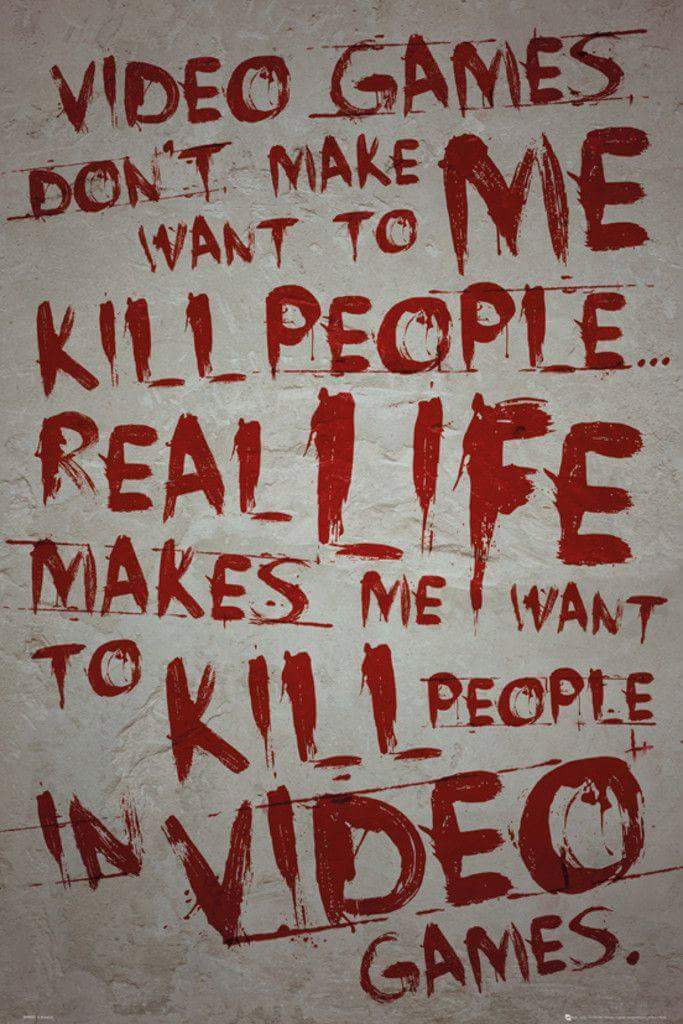 VIDEO GAMES
DON'T MAKE ME
WANT TO
KILL PEOPLE...
REAL LIFE
MAKES ME WANT
TO KILL PEOPLE
IN VIDEO
GAMES.